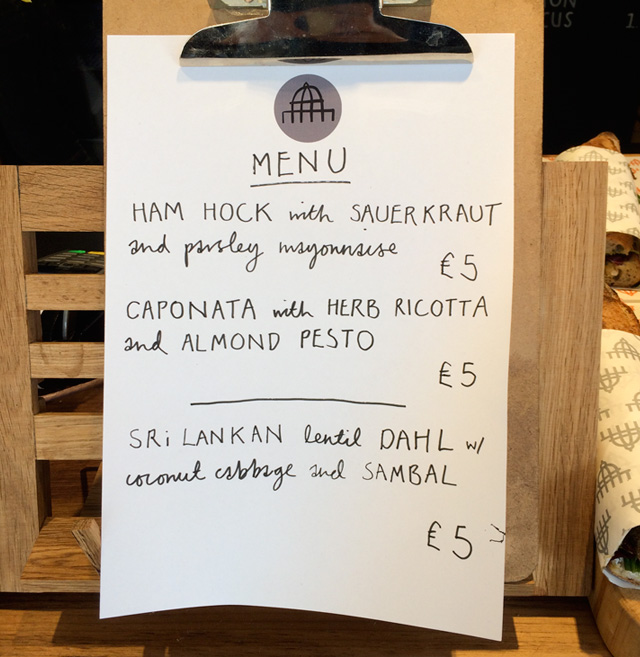 MENU
HAM HOCK with SAUERKRAUT
and parsley mayonnaise
£5
CAPONATA with HERB RICOTTA
and ALMOND PESTO
£5
SRi LANKAN lentil DAHL w/
coconut cabbage and SAMBAL
£5